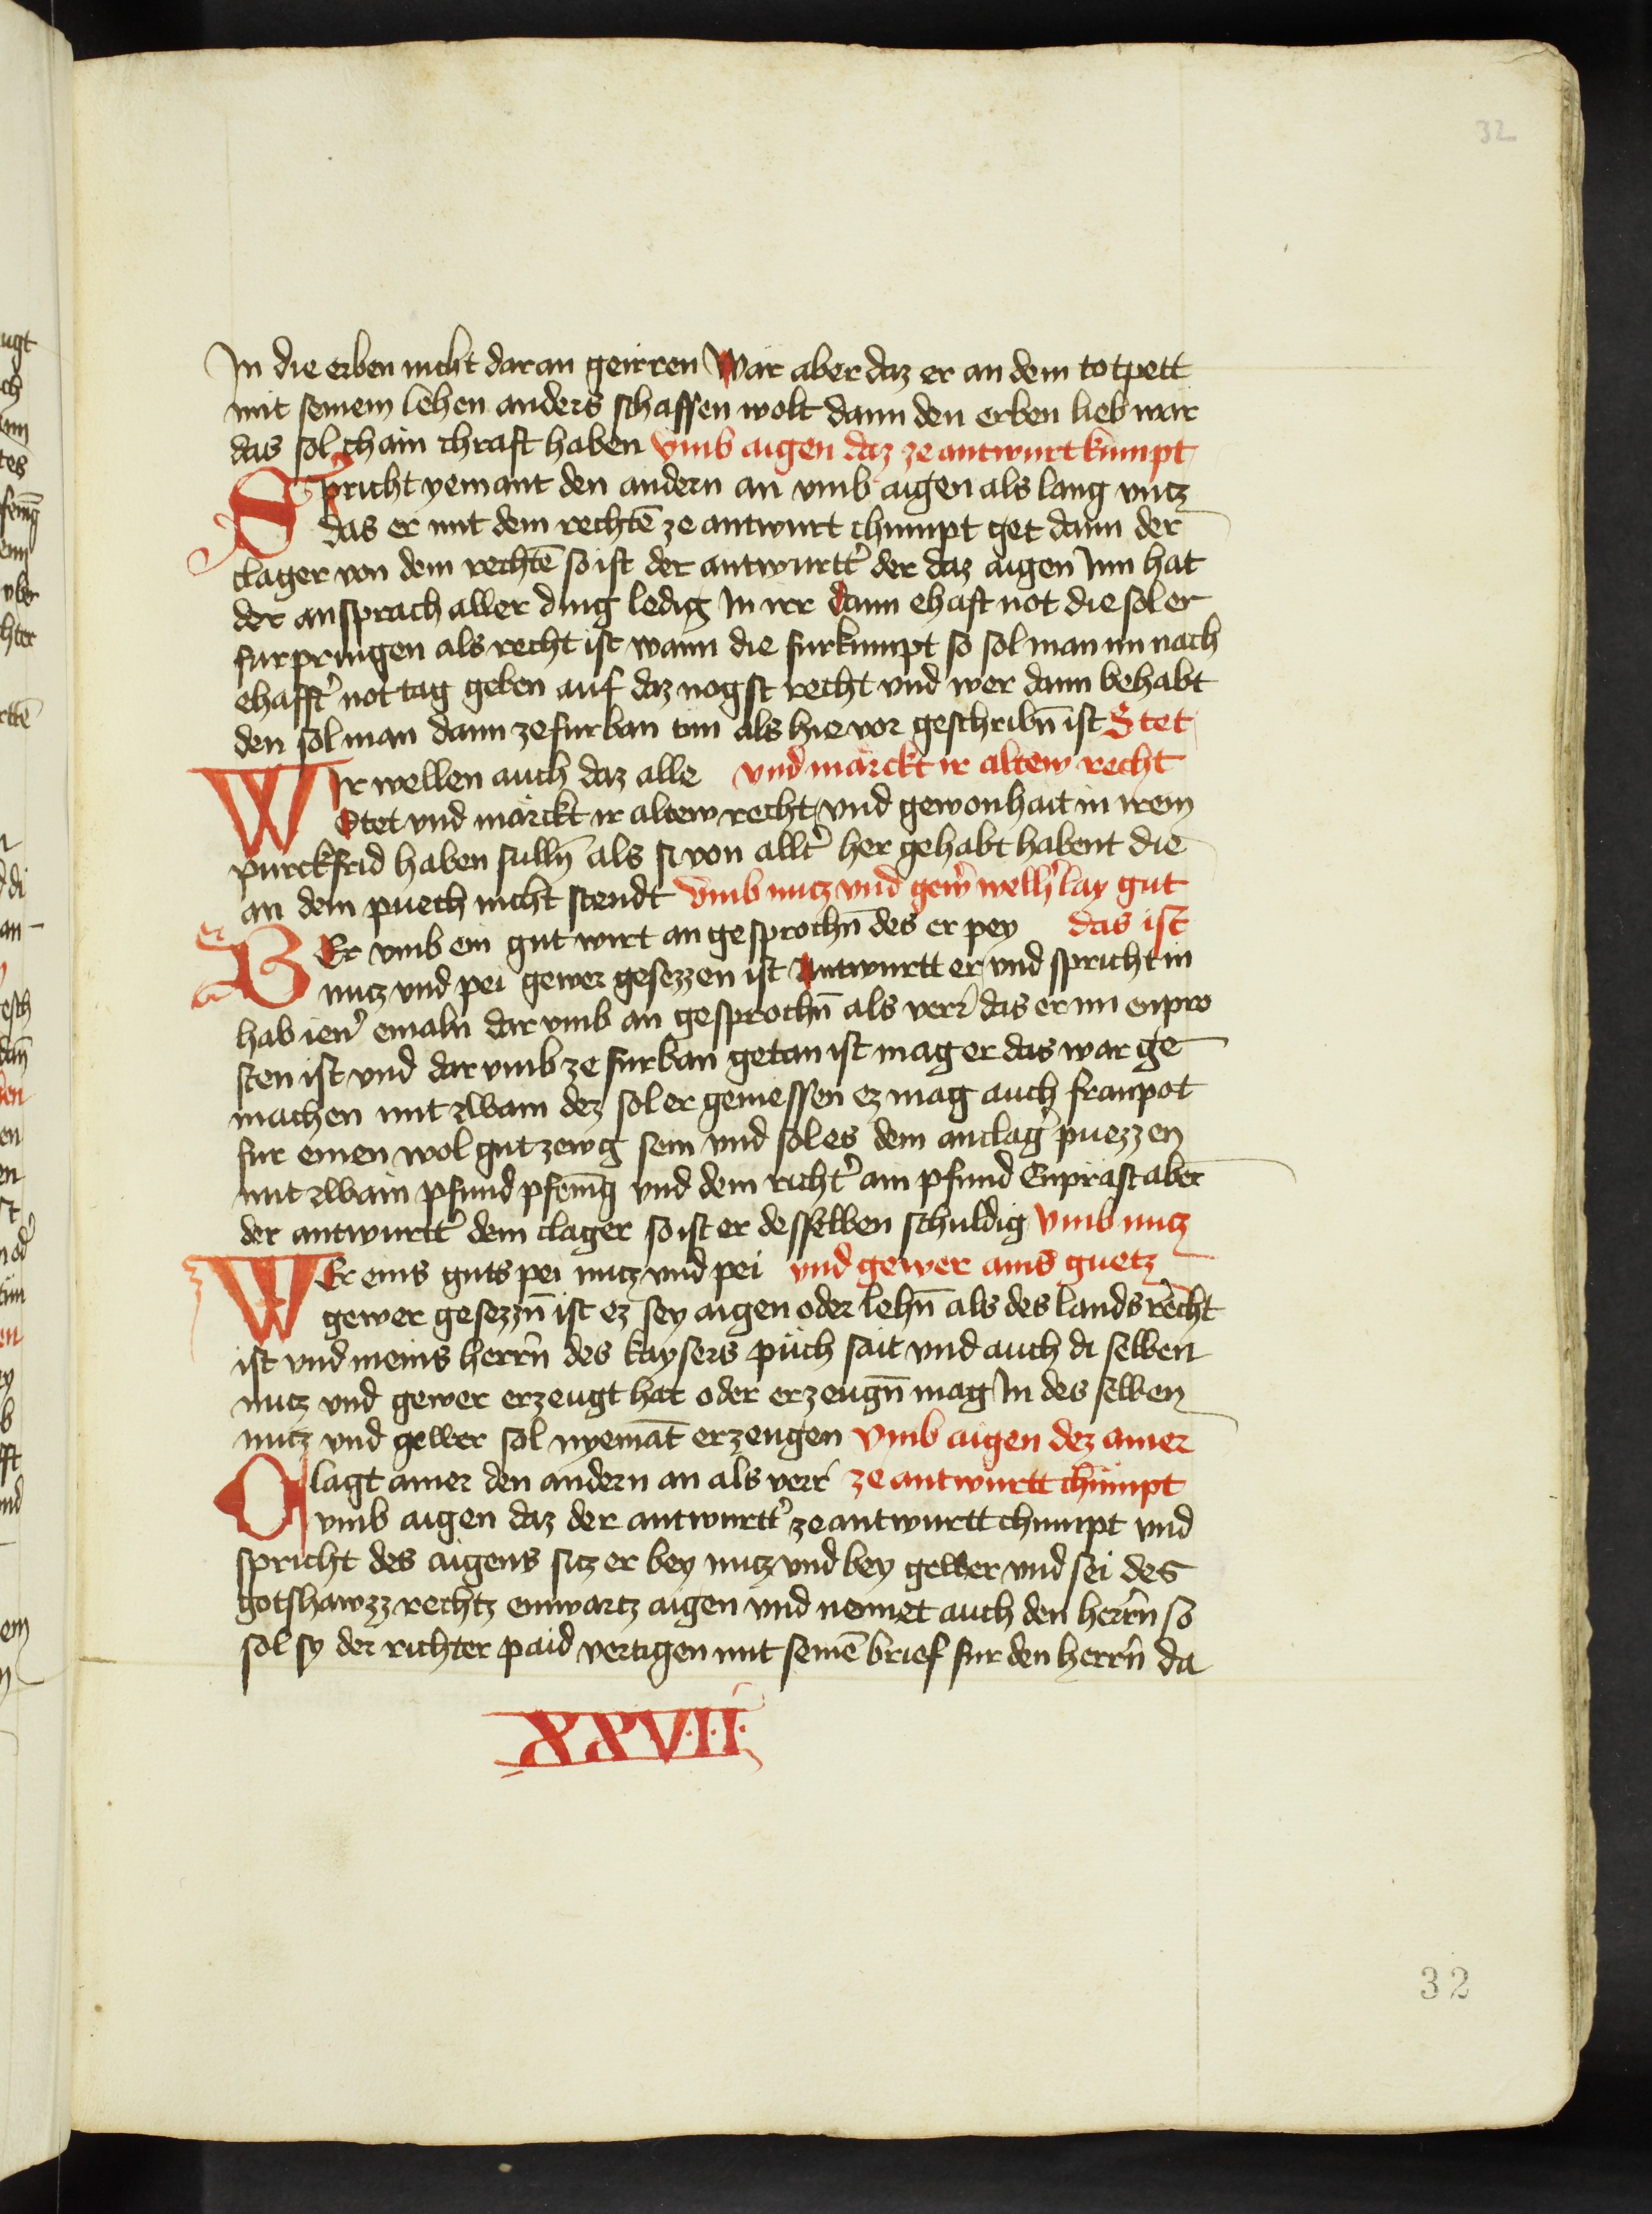 32
In die erben nicht daran geirren Wär aber daz er an dem totpett
mit seinem lehen anders schaffen wolt dann den erben lieb wär
das sol chain chraft haben Vmb aigen daz ze antwurt kumpt
Spricht yemant den andern an vmb aigen als lang vncz
das er mit dem rechtē ze antwurt chumpt get dann der
clager von dem rechtē so ist der antwurtt̉ der daz aigen Inn hat
der ansprach aller ding ledig In irr dann ehaft not die sol er
furpringen als recht ist wann die furkumpt so sol man im nach
ehafft̉ not tag geben auf daz nogst recht vnd wer dann behabt
den sol man dann ze furban tun als hie vor geschribn̄ ist Stet
WIr wellen auch daz alle vnd märckt ir altew recht
Stet vnd märckt ir altew recht vnd gewonhait in irem
purckfrid haben sulln̄ als si von allt̉ her gehabt habent die
an dem puech nicht stendt Vmb nucz vnd gew̉ welh̉lay gut
BEr vmb ein gut wirt an gesprochn̄ des er pey das ist
nucz vnd pei gewer gesezzen ist Antwurtt er vnd spricht in
hab ien̉ emaln dar vmb an gesprochn̄ als verr̉ das er im enpro
sten ist vnd dar vmb ze furban getan ist mag er das war ge
machen mit zwain dez sol er geniessen ez mag auch franpot
fur einen wol gut zewg sein vnd sol es dem anclag̉ puezzen
mit zwain pfund pfenīg vnd dem richt̉ ain pfund Enprast aber
der antwurtt̉ dem clager so ist er desselben schuldig Vmb nucz
WEr eins guts pei nucz vnd pei vnd gewer ains guetz
gewer gesezzn̄ ist ez sey aigen oder lehn̄ als des lands recht
ist vnd meins herrn̄ des kaysers püch sait vnd auch di selben
nucz vnd gewer erzeugt hat oder erzeugn̄ mag In des selben
nucz vnd gewer sol nyemāt erzeugen Vmb aigen dez ainer
Clagt ainer den andern an als verr̉ ze antwurtt chumpt
vmb aigen daz der antwurtt̉ ze antwurtt chumpt vnd
spricht des aigens sicz er bey nucz vnd bey gewer vnd sei des
gotshawzz rechtz einwartz aigen vnd nennet auch den herrn̄ so
sol sy der richter paid vertigen mit seinē brief fur den herrn̄ da
XXVII
32